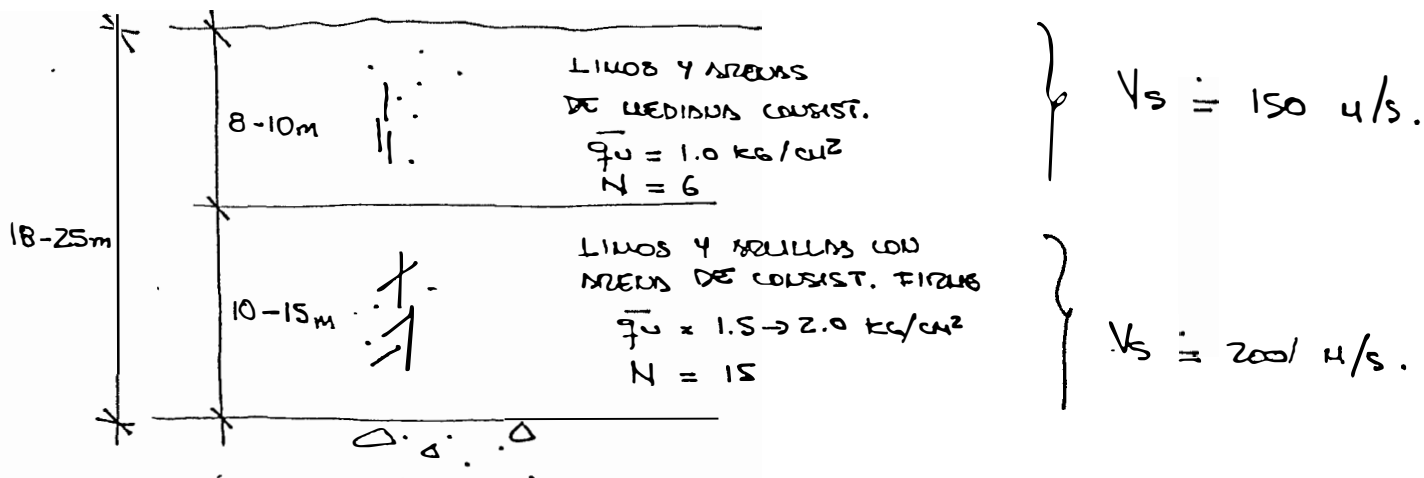 8-10m
LIMOS Y ARENAS
DE MEDIANA CONSIST.
qu = 1.0 KG/CM²
N = 6
Vs ≐ 150 M/S.
18-25m
10-15m
LIMOS Y ARCILLAS CON
ARENA DE CONSIST. FIRME
qu = 1.5 → 2.0 KG/CM²
N = 15
Vs ≐ 200/ M/S.